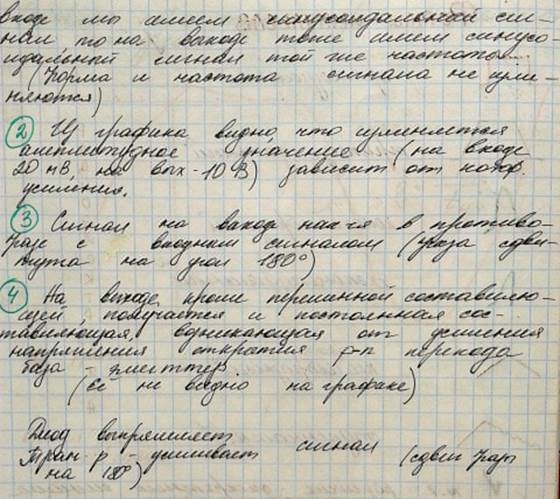 входе мы имеем синусоидальный сиг-
нал то на выходе тоже имеем синусо-
идальный сигнал той же частоты...
(Форма и частота сигнала не изме-
няются)
② Из графика видно, что изменяется
амплитудное значение (на входе
20 мВ, на вых - 10 В) зависит от коэф.
усиления.
③ Сигнал на выходе нах-ся в противо-
фазе с входным сигналом (фаза сдви-
нута на угол 180°)
④ На выходе, кроме переменной составляю-
щей, получается и постоянная сос-
тавляющая, возникающая от усиления
напряжения открытия p-n перехода
база - эмиттер.
(Её не видно на графике)
Диод выпрямляет
Тран-р - усиливает сигнал (сдвиг фазы
на 180°)